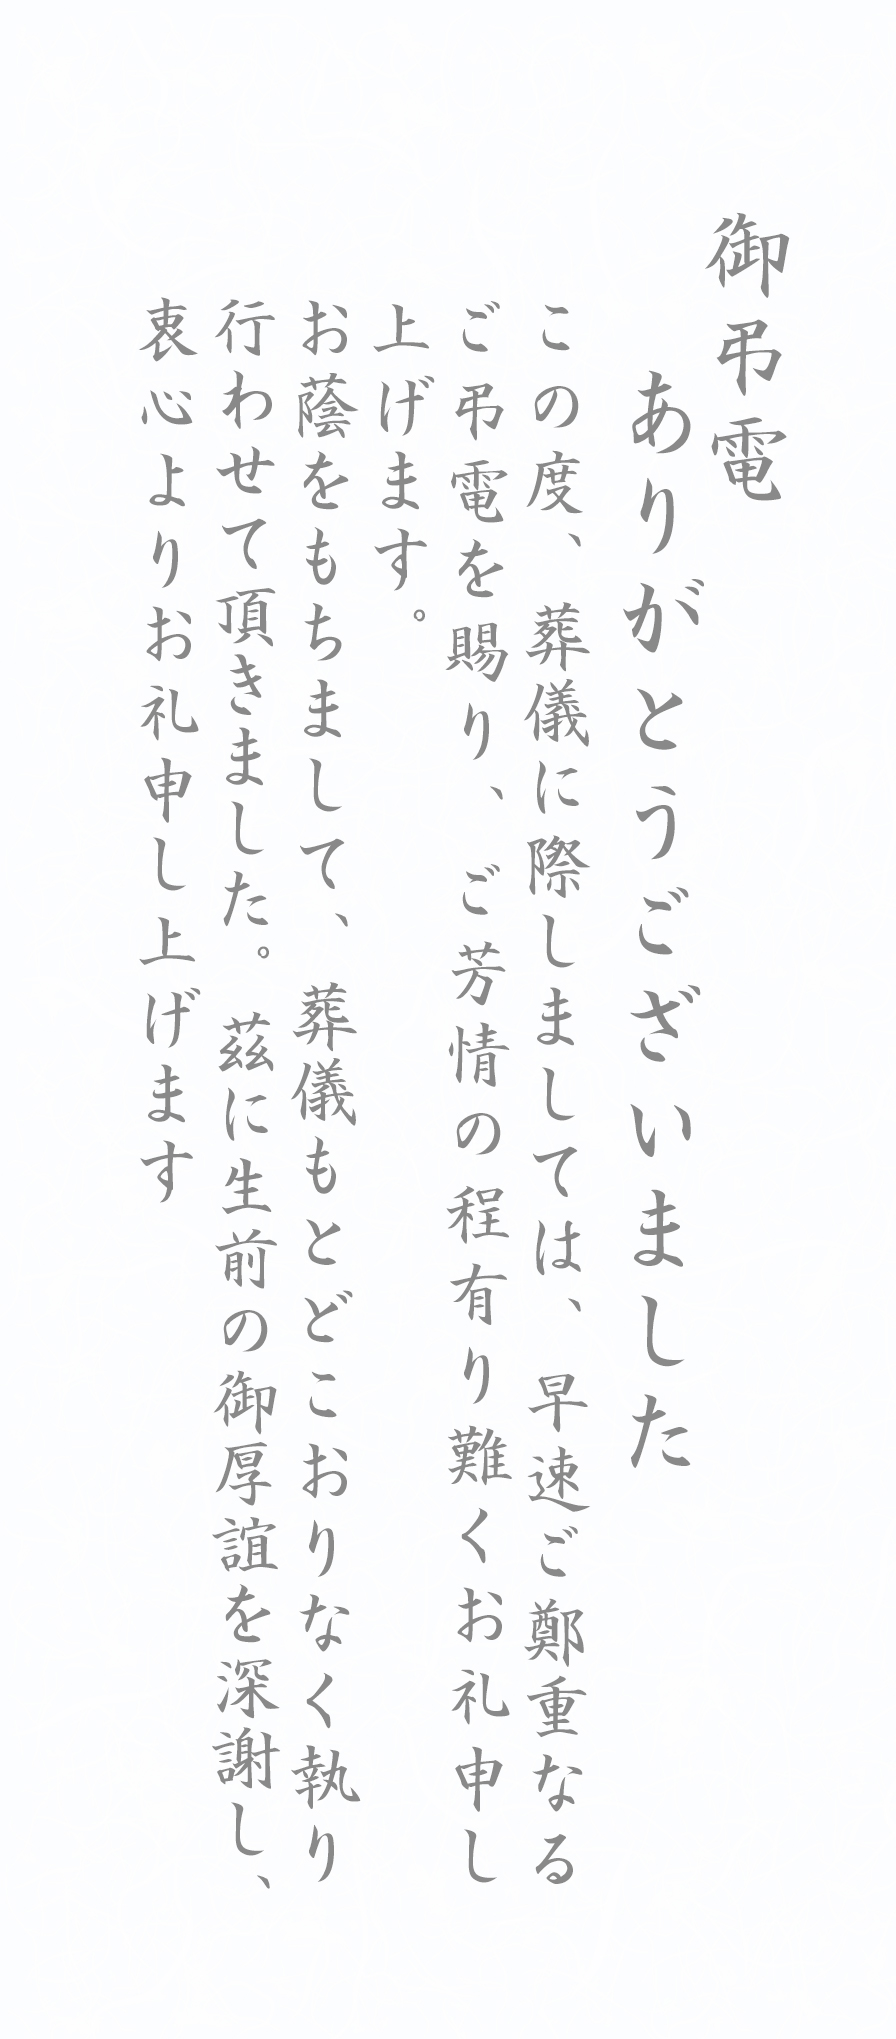 御弔電
ありがとうございました
この度、葬儀に際しましては、早速ご鄭重なる
ご弔電を賜り、ご芳情の程有り難くお礼申し
上げます。
お蔭をもちまして、葬儀もとどこおりなく執り
行わせて頂きました。茲に生前の御厚誼を深謝し、
衷心よりお礼申し上げます